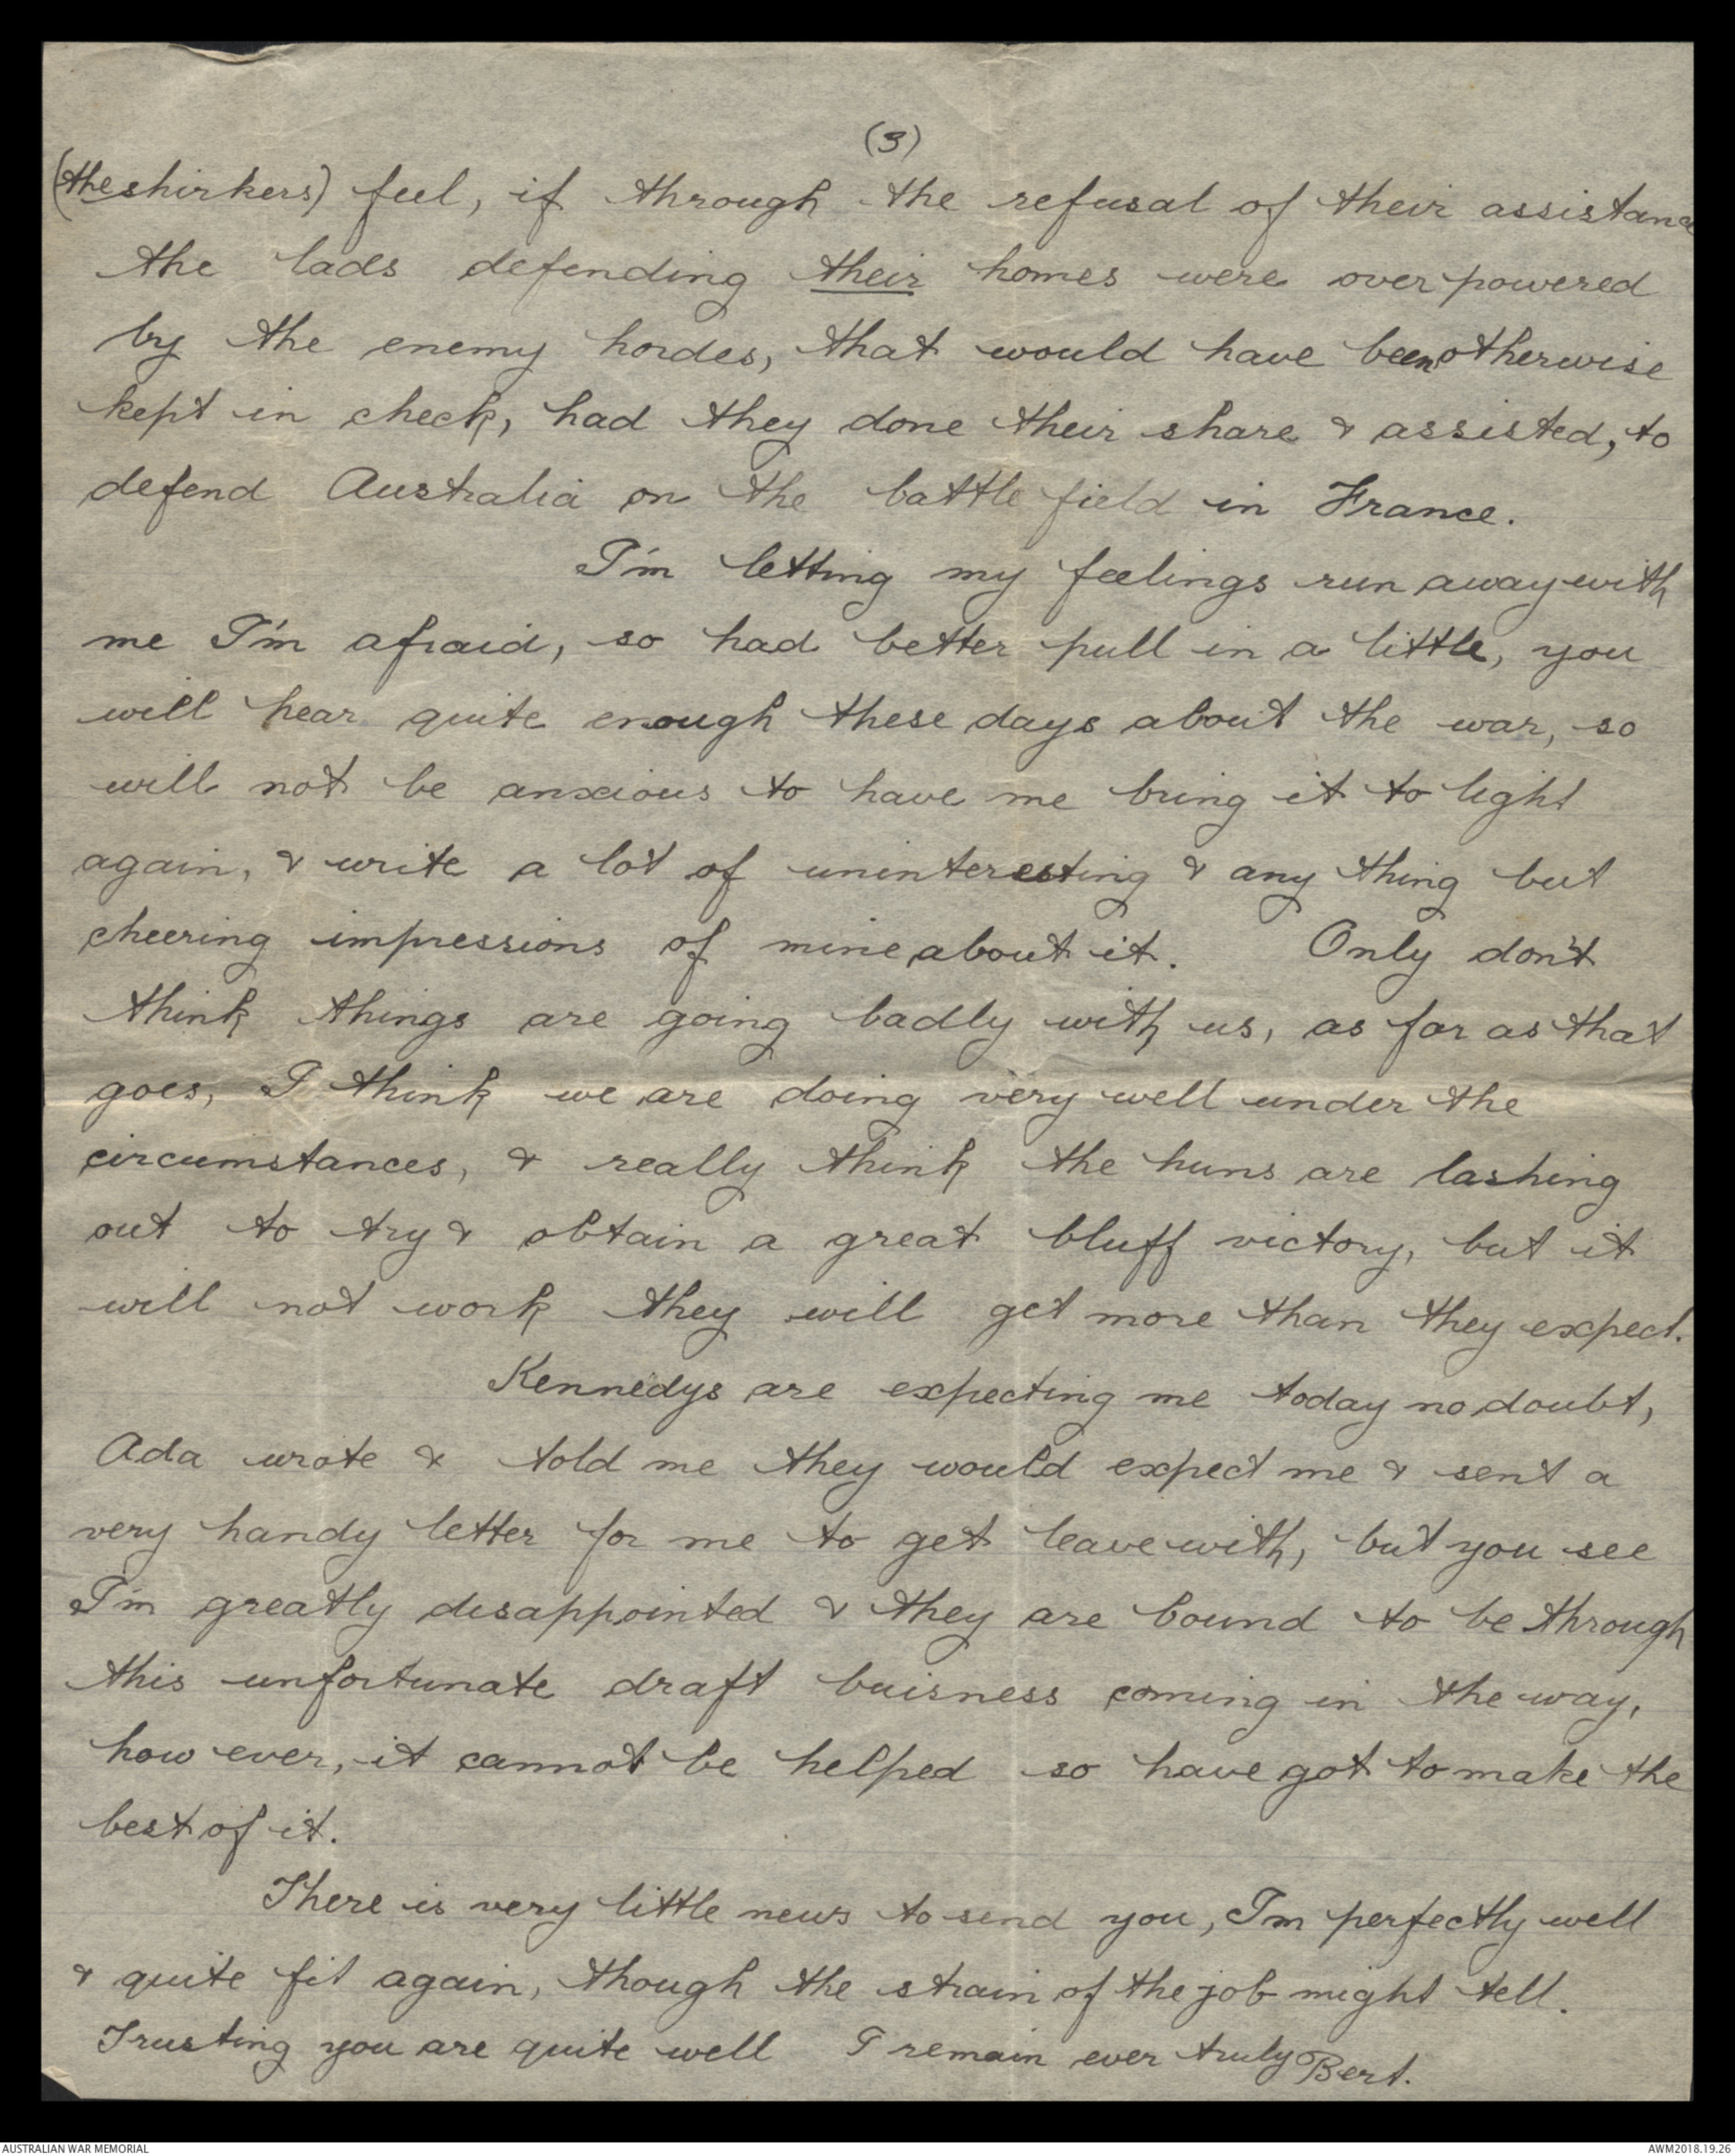 (3)
(the shirkers) feel, if through the refusal of their assistance
the lads defending their homes were over powered
by the enemy hordes, that would have been otherwise
kept in check, had they done their share & assisted, to
defend Australia on the battle field in France.
I'm letting my feelings run away with
me I'm afraid, so had better pull in a little, you
will hear quite enough these days about the war, so
will not be anxious to have me bring it to light
again, & write a lot of uninteresting & any thing but
cheering impressions of mine about it. Only don't
think things are going badly with us, as far as that
goes, I think we are doing very well under the
circumstances, & really think the huns are lashing
out to try & obtain a great bluff victory, but it
will not work they will get more than they expect.
Kennedys are expecting me today no doubt,
Ada wrote & told me they would expect me & sent a
very handy letter for me to get leave with, but you see
I'm greatly disappointed & they are bound to be through
this unfortunate draft buisness coming in the way,
how ever, it cannot be helped so have got to make the
best of it.
There is very little news to send you, I'm perfectly well
& quite fit again, though the strain of the job might tell.
Trusting you are quite well I remain ever truly Bert.
AUSTRALIAN WAR MEMORIAL
AWM2018.19.26